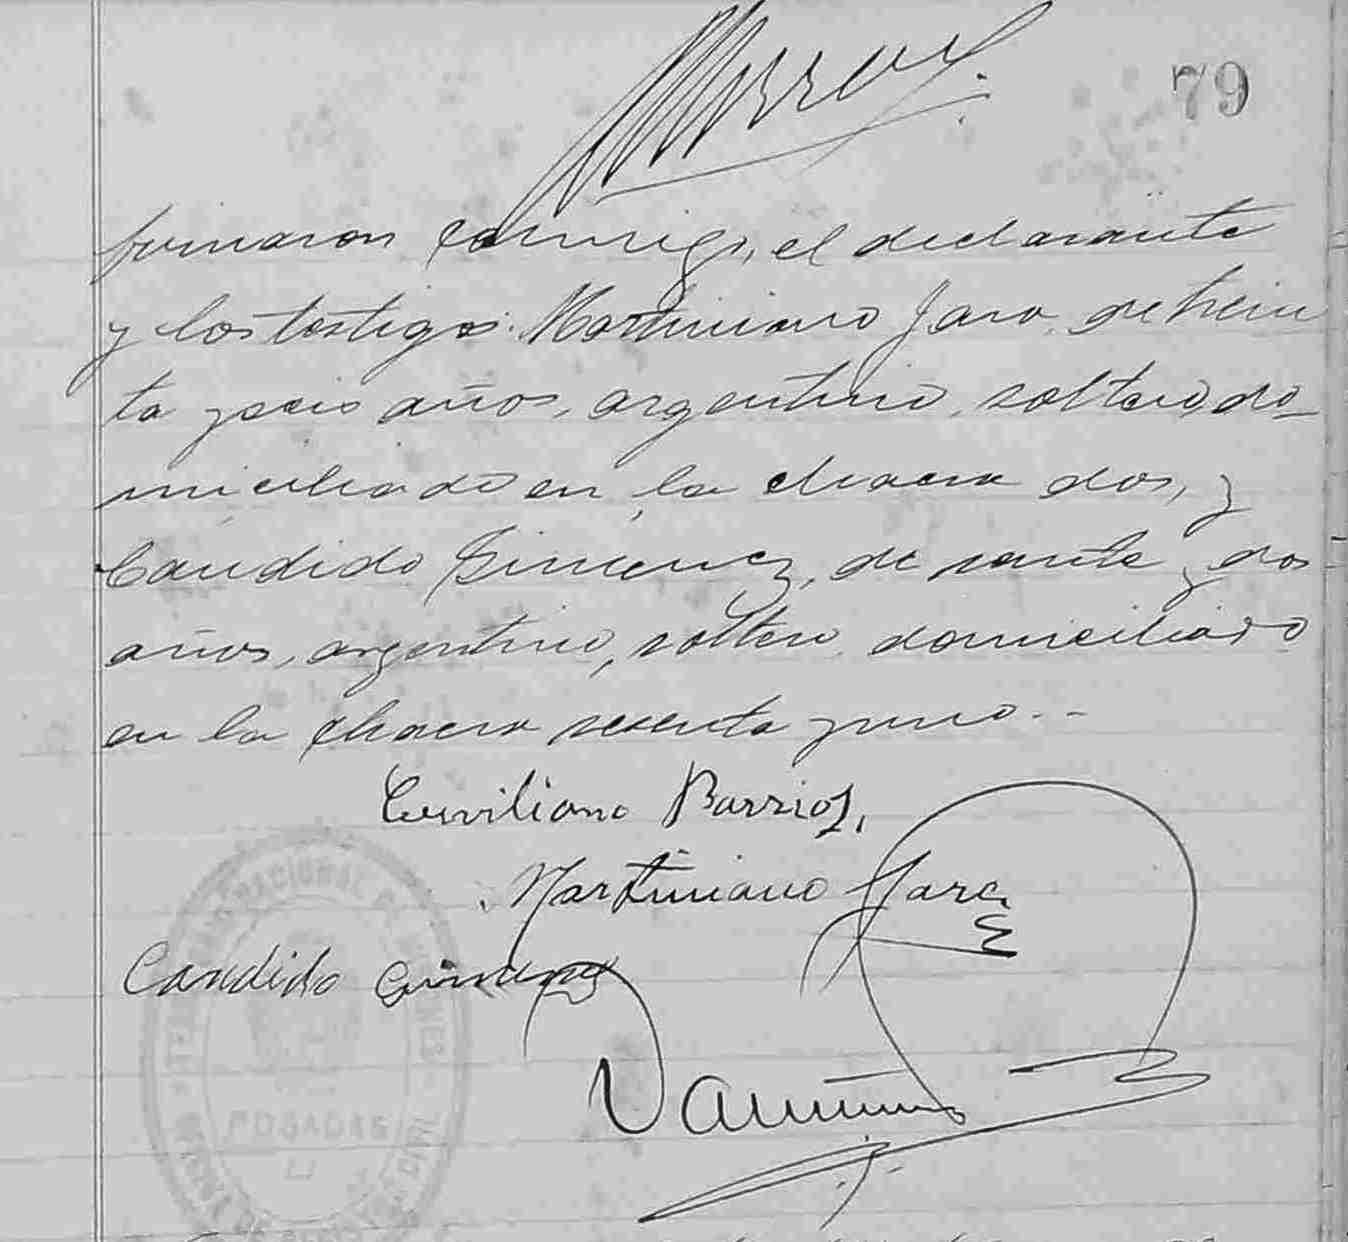 79
firmaron conmigo, el declarante
y los testigos: Martiniano Jara, de trein
ta y seis años, argentino, soltero, do_
miciliado en la chacra dos, y
Candido Gimenez, de veinte y dos
años, argentino, soltero, domiciliado
en la chacra sesenta y uno.--
Barrios,
Martiniano Jara
Candido Gimenez
NACIONAL DE MISIONES
POSADAS